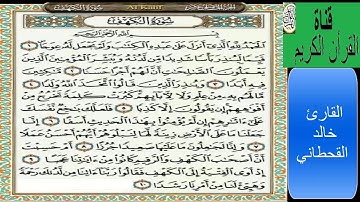 سُورَةُ الكَهْفِ
Al Kahf
سُورَةُ الكَهْفِ
بِسْمِ اللَّهِ الرَّحْمَٰنِ الرَّحِيمِ
الْحَمْدُ لِلَّهِ الَّذِي أَنزَلَ عَلَىٰ عَبْدِهِ الْكِتَٰبَ وَلَمْ يَجْعَل لَّهُ عِوَجَا ۜ ١
قَيِّمًا لِّيُنذِرَ بَأْسًا شَدِيدًا مِّن لَّدُنْهُ وَيُبَشِّرَ الْمُؤْمِنِينَ الَّذِينَ
يَعْمَلُونَ الصَّٰلِحَٰتِ أَنَّ لَهُمْ أَجْرًا حَسَنًا ٢ مَّٰكِثِينَ
فِيهِ أَبَدًا ٣ وَيُنذِرَ الَّذِينَ قَالُوا اتَّخَذَ اللَّهُ وَلَدًا ٤ مَّا
لَهُم بِهِ مِنْ عِلْمٍ وَلَا لِءَابَائِهِمْ كَبُرَتْ كَلِمَةً تَخْرُجُ مِنْ
أَفْوَٰهِهِمْ إِن يَقُولُونَ إِلَّا كَذِبًا ٥ فَلَعَلَّكَ بَٰخِعٌ نَّفْسَكَ
عَلَىٰ ءَاثَٰرِهِمْ إِن لَّمْ يُؤْمِنُوا بِهَٰذَا الْحَدِيثِ أَسَفًا ٦ إِنَّا
جَعَلْنَا مَا عَلَى الْأَرْضِ زِينَةً لَّهَا لِنَبْلُوَهُمْ أَيُّهُمْ أَحْسَنُ عَمَلًا
٧ وَإِنَّا لَجَٰعِلُونَ مَا عَلَيْهَا صَعِيدًا جُرُزًا ٨ أَمْ حَسِبْتَ
أَنَّ أَصْحَٰبَ الْكَهْفِ وَالرَّقِيمِ كَانُوا مِنْ ءَايَٰتِنَا عَجَبًا ٩
إِذْ أَوَى الْفِتْيَةُ إِلَى الْكَهْفِ فَقَالُوا رَبَّنَا ءَاتِنَا مِن لَّدُنكَ رَحْمَةً
وَهَيِّئْ لَنَا مِنْ أَمْرِنَا رَشَدًا ١٠
قناة
القرآن الكريم
القارئ
خالد
القحطاني